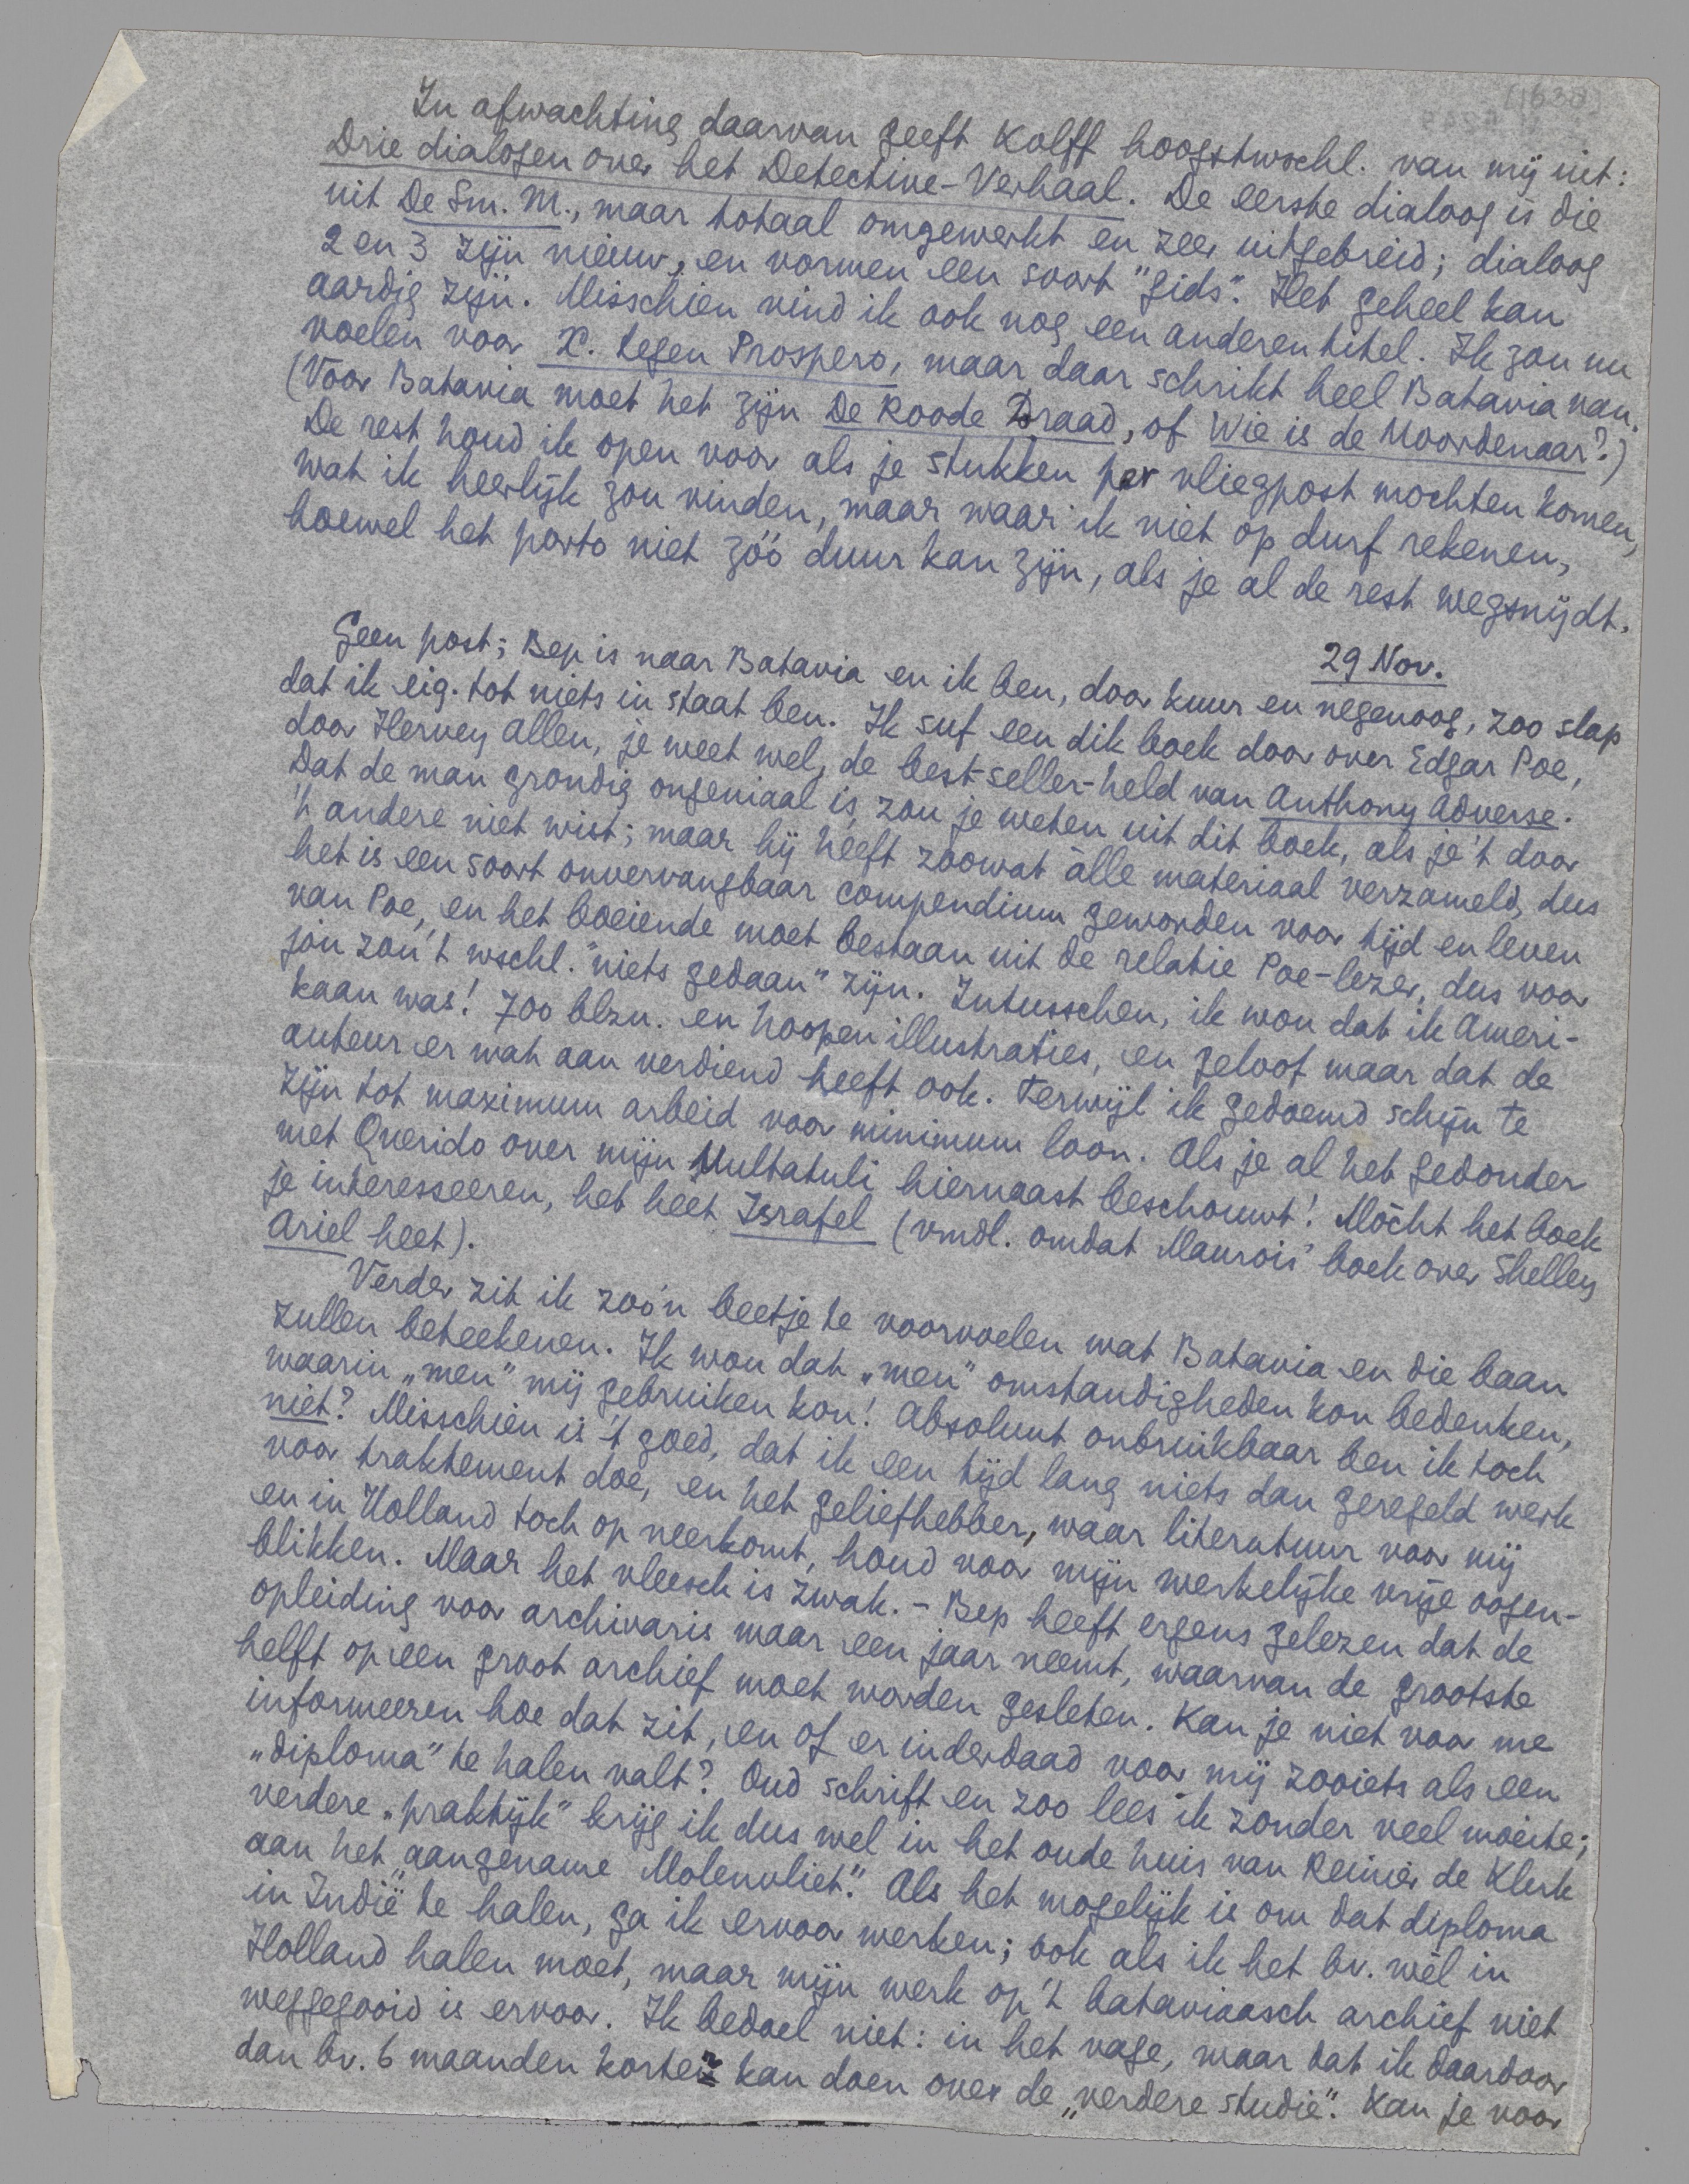 In afwachting daarvan geeft Kolff hoogstwschl. van mij uit:
Drie dialogen over het Detective-Verhaal. De eerste dialoog is die
uit De Sm. M., maar totaal omgewerkt en zeer uitgebreid; dialoog
2 en 3 zijn nieuw, en vormen een soort "gids". Het geheel kan
aardig zijn. Misschien vind ik ook nog een anderen titel. Ik zou nu
voelen voor X. tegen Prospero, maar daar schrikt heel Batavia van.
(Voor Batavia moet het zijn De Roode Draad, of Wie is de Moordenaar?)
De rest houd ik open voor als je stukken per vliegpost mochten komen,
wat ik heerlijk zou vinden, maar waar ik niet op durf rekenen,
hoewel het porto niet zóó duur kan zijn, als je al de rest wegsnijdt.
29 Nov.
Geen post; Bep is naar Batavia en ik ben, door kuur en negenoog, zoo slap
dat ik eig. tot niets in staat ben. Ik suf een dik boek door over Edgar Poe,
door Hervey Allen, je weet wel, de best-seller-held van Anthony Adverse.
Dat de man grondig ongeniaal is, zou je weten uit dit boek, als je 't door
't andere niet wist; maar hij heeft zoowat àlle materiaal verzameld, dus
het is een soort onvervangbaar compendium geworden voor tijd en leven
van Poe, en het boeiende moet bestaan uit de relatie Poe-lezer, dus voor
jou zou 't wschl. "niets gedaan" zijn. Intusschen, ik wou dat ik Ameri-
kaan was! 700 blzn. en hoopen illustraties, en geloof maar dat de
auteur er wat aan verdiend heeft ook. Terwijl ik gedoemd schijn te
zijn tot maximum arbeid voor minimum loon. Als je al het gedonder
met Querido over mijn Multatuli hiernaast beschouwt! Mòcht het boek
je interesseeren, het heet Israfel (vmdl. omdat Maurois' boek over Shelley
Ariel heet).
Verder zit ik zoo'n beetje te voorvoelen wat Batavia en die baan
zullen beteekenen. Ik wou dat „men" omstandigheden kon bedenken,
waarin „men" mij gebruiken kon! Absoluut onbruikbaar ben ik toch
niet? Misschien is 't goed, dat ik een tijd lang niets dan geregeld werk
voor traktement doe, en het geliefhebber, waar literatuur voor mij
en in Holland toch op neerkomt, houd voor mijn werkelijke vrije oogen-
blikken. Maar het vleesch is zwak. - Bep heeft ergens gelezen dat de
opleiding voor archivaris maar een jaar neemt, waarvan de grootste
helft op een groot archief moet worden gesleten. Kan je niet voor me
informeeren hoe dat zit, en of er inderdaad voor mij zooiets als een
„diploma" te halen valt? Oud schrift en zoo lees ik zonder veel moeite;
verdere „praktijk" krijg ik dus wel in het oude huis van Reinier de Klerk
aan het „aangename Molenvliet". Als het mogelijk is om dat diploma
in Indië te halen, ga ik ervoor werken; ook als ik het bv. wèl in
Holland halen moet, maar mijn werk op 't bataviaasch archief niet
weggegooid is ervoor. Ik bedoel niet: in het vage, maar dat ik daardoor
dan bv. 6 maanden korter kan doen over de „verdere studie". Kan je voor